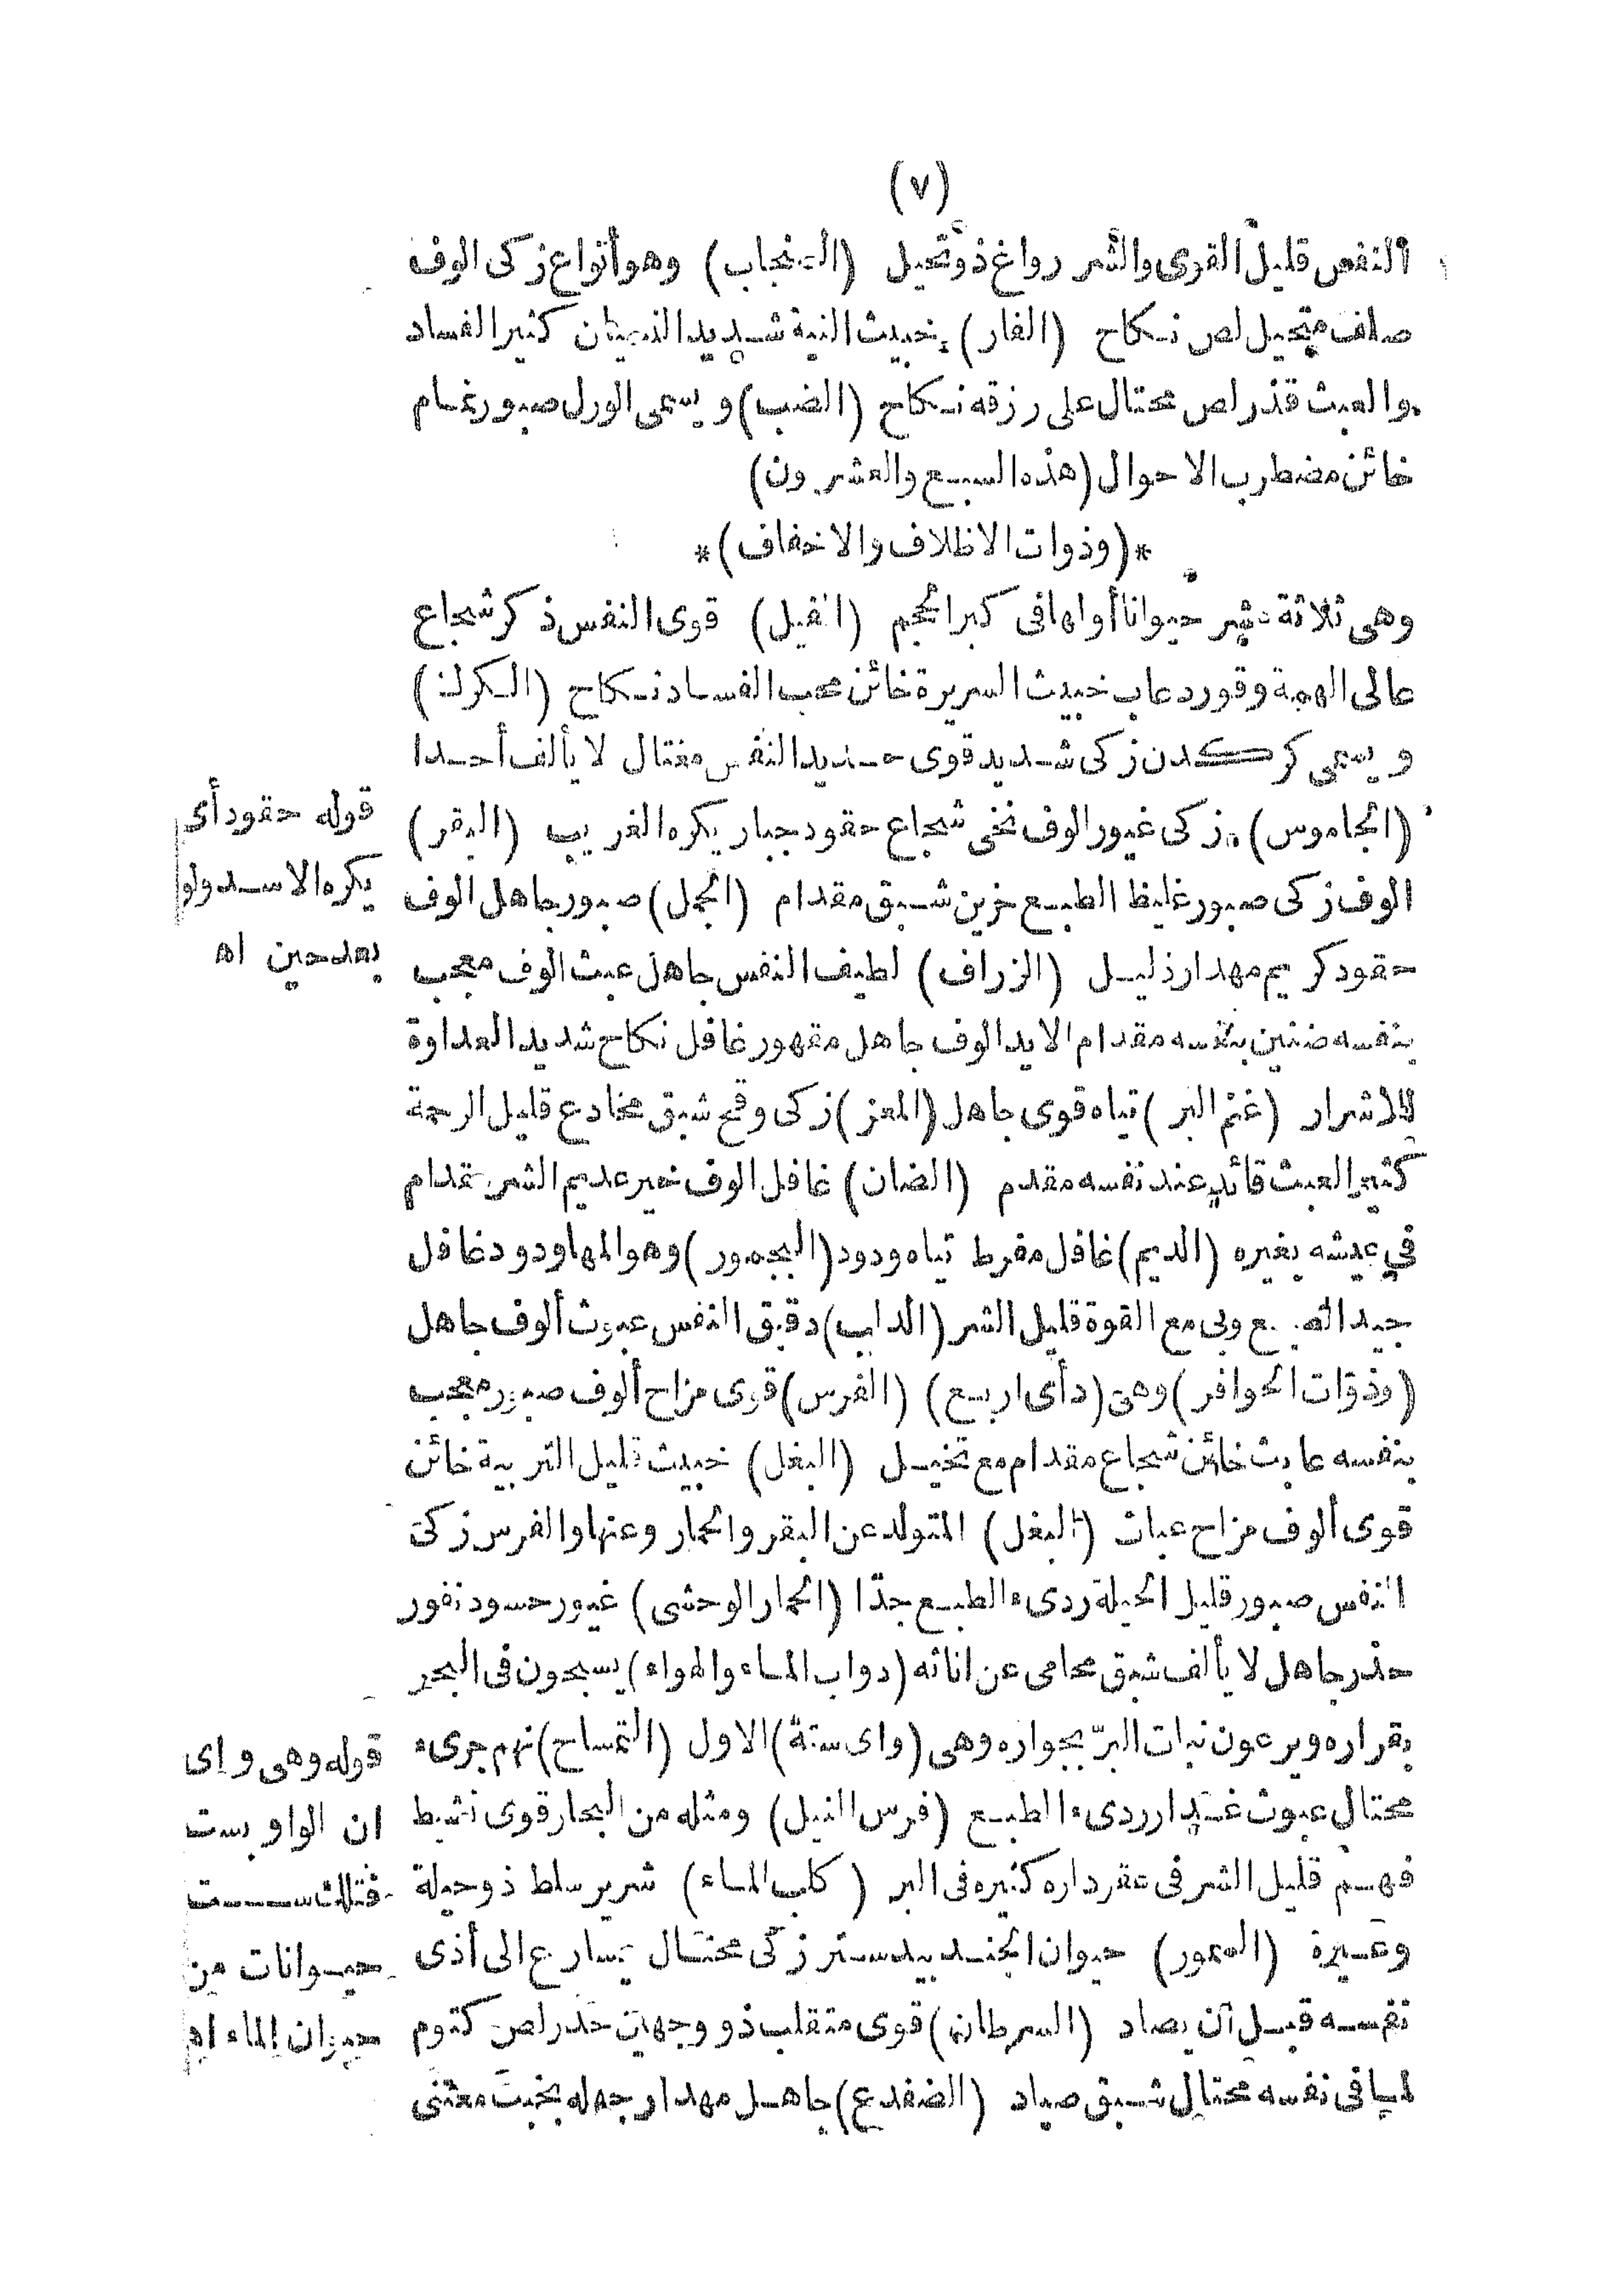 (٧)
النفس قليل القوى والشر رواغ ذو تحيل (السنجاب) وهو أنواع زكى الوف
صلف متحيل لص نكاح (الفار) خبيث النية شديد كثير الفساد
والعبث قذر لص محتال على رزقه نكاح (الضب) ويسمى الورل صبور نمام
خائن مضطرب الاحوال (هذه السبع والعشرون)
*(وذوات الاظلاف والاخفاف)*
وهى ثلاثة عشر حيوانا أولها فى كبر الحجم (الفيل) قوى النفس ذكر شجاع
عالى الهمة وقور دعاب خبيث السريرة خائن محب الفساد نكاح (الكرك)
ويسمى كركدن زكى شديد قوى حديد النفس مغتال لا يألف أحدا
(الجاموس) زكى غيور الوف نخى شجاع حقود جبار يكره الغريب (البقر)
الوف زكى صبور غليظ الطبع خزين شبق مقدام (الجمل) صبور جاهل الوف
حقود كريم مهدار ذليل (الزراف) لطيف النفس جاهل عبث الوف معجب
بنفسه ضنين بنفسه مقدام الايد الوف جاهل مقهور غافل نكاح شديد العداوة
للاشرار (غنم البر) تياه قوى جاهل (المعز) زكى وقح شبق مخادع قليل الرحمة
كثير العبث قائد عند نفسه مقدم (الضان) غافل الوف خير عديم الشر مقدام
فى عيشه بغيره (الديم) غافل مفرط تياه ودود (اليحمور) وهو المها ودود غافل
جيد وبى مع القوة قليل الشر (الداب) دقيق النفس عبوث ألوف جاهل
(وذوات الحوافر) وهى (د أى اربع) (الفرس) قوى مزاح ألوف صبور معجب
بنفسه عابث خائن شجاع مقدام مع تخيل (البغل) خبيث قليل التربية خائن
قوى ألوف مزاح عباث (البغل) المتولد عن البقر والحمار وعنها والفرس زكى
النفس صبور قليل الحيلة ردىء الطبع جدّا (الحمار الوحشى) غيور حسود نفور
حذر جاهل لا يألف شبق محامى عن اناثه (دواب الماء والهواء) يسبحون فى البحر
بقراره ويرعون نبات البرّ بجواره وهى (و اى ستة) الاول (التمساح) نهم جرىء
محتال عبوث غدار ردىء الطبع (فرس النيل) ومثله من البحار قوى نشيط
فهم قليل الشر فى عقر داره كثيره فى البر (كلب الماء) شرير سلط ذو حيلة
وغيرة (السمور) حيوان الجند بيدستر زكى محتال يسارع الى أذى
نفسه قبل أن يصاد (السرطان) قوى متقلب ذو وجهين حذر لص كتوم
لما فى نفسه محتال شبق صياد (الضفدع) جاهل مهدار جهله بخبث معتنى
قوله حقود أى
يكره الاسد ولو
بعد حين اه
قوله وهى و اى
ان الواو بست
فتلك ست
حيوانات من
حيوان الماء اه